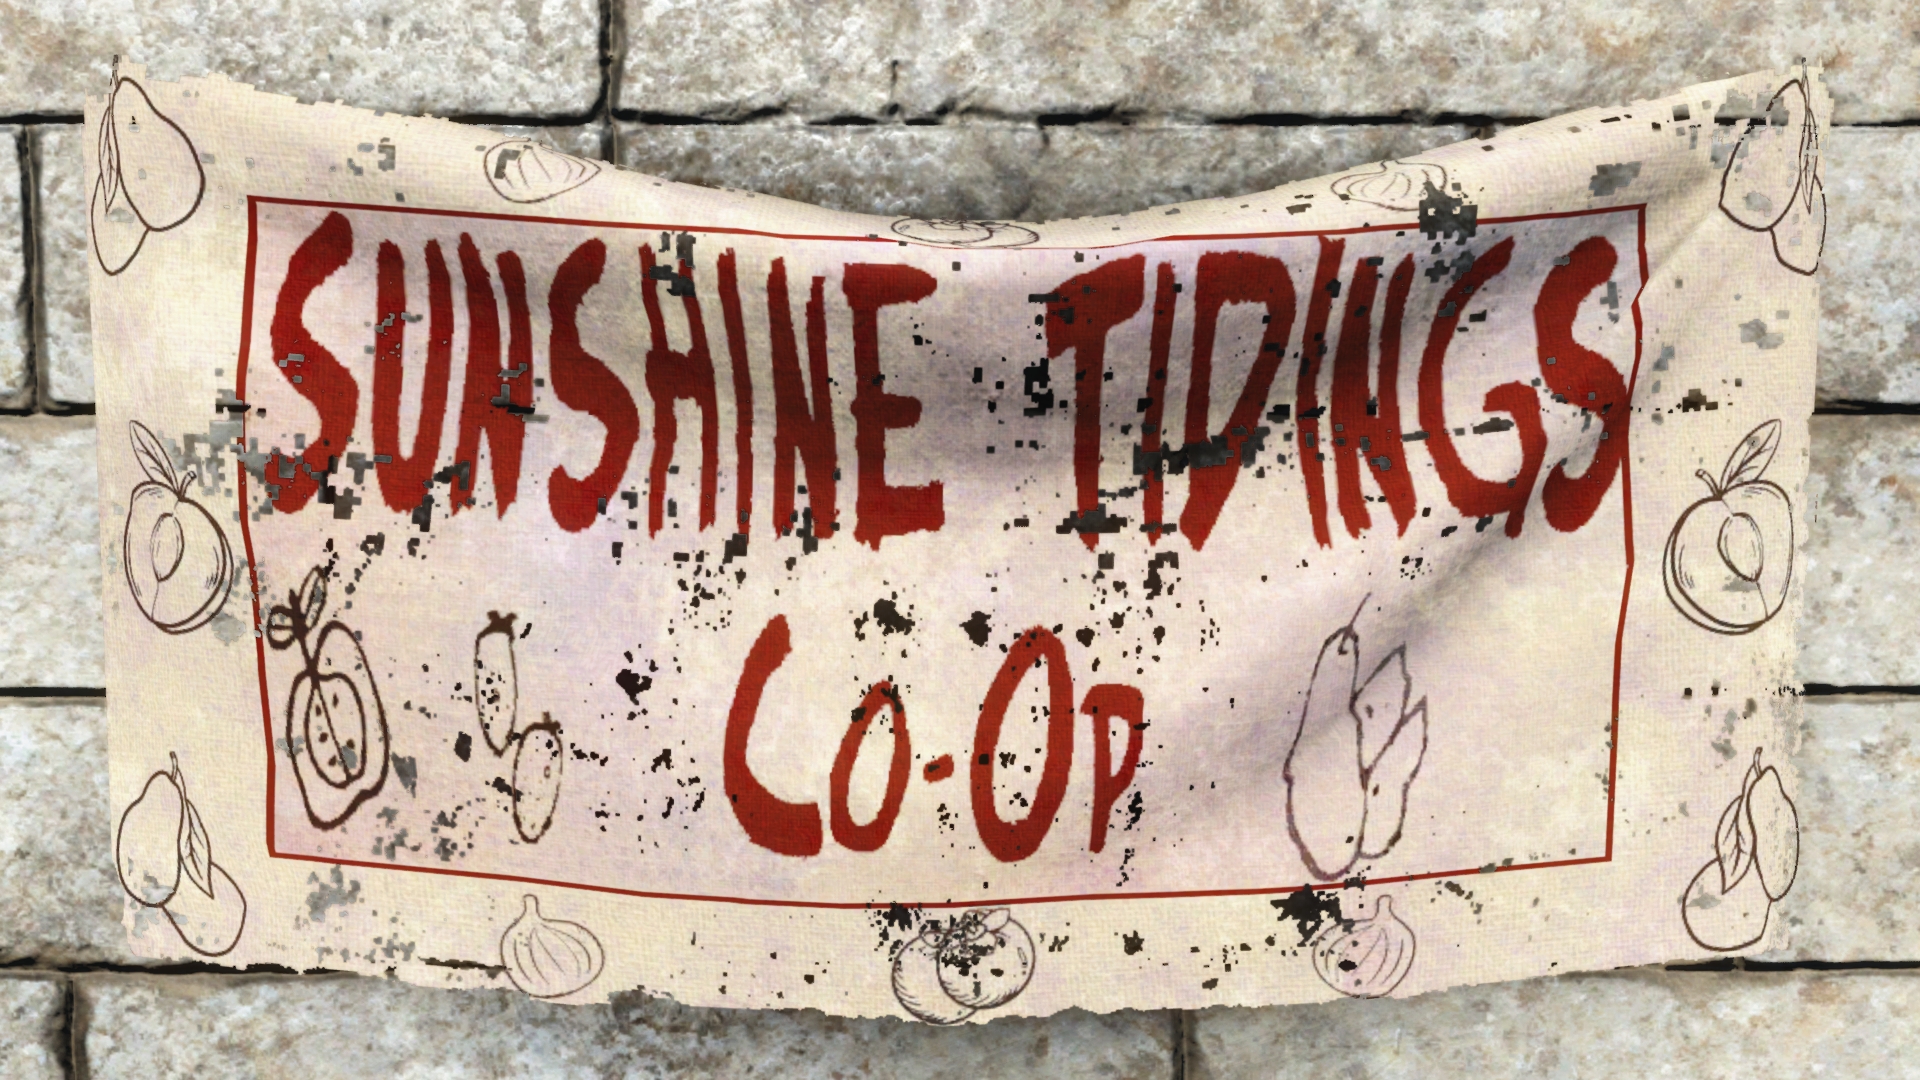 SUNSHINE TIDINGS
CO-OP